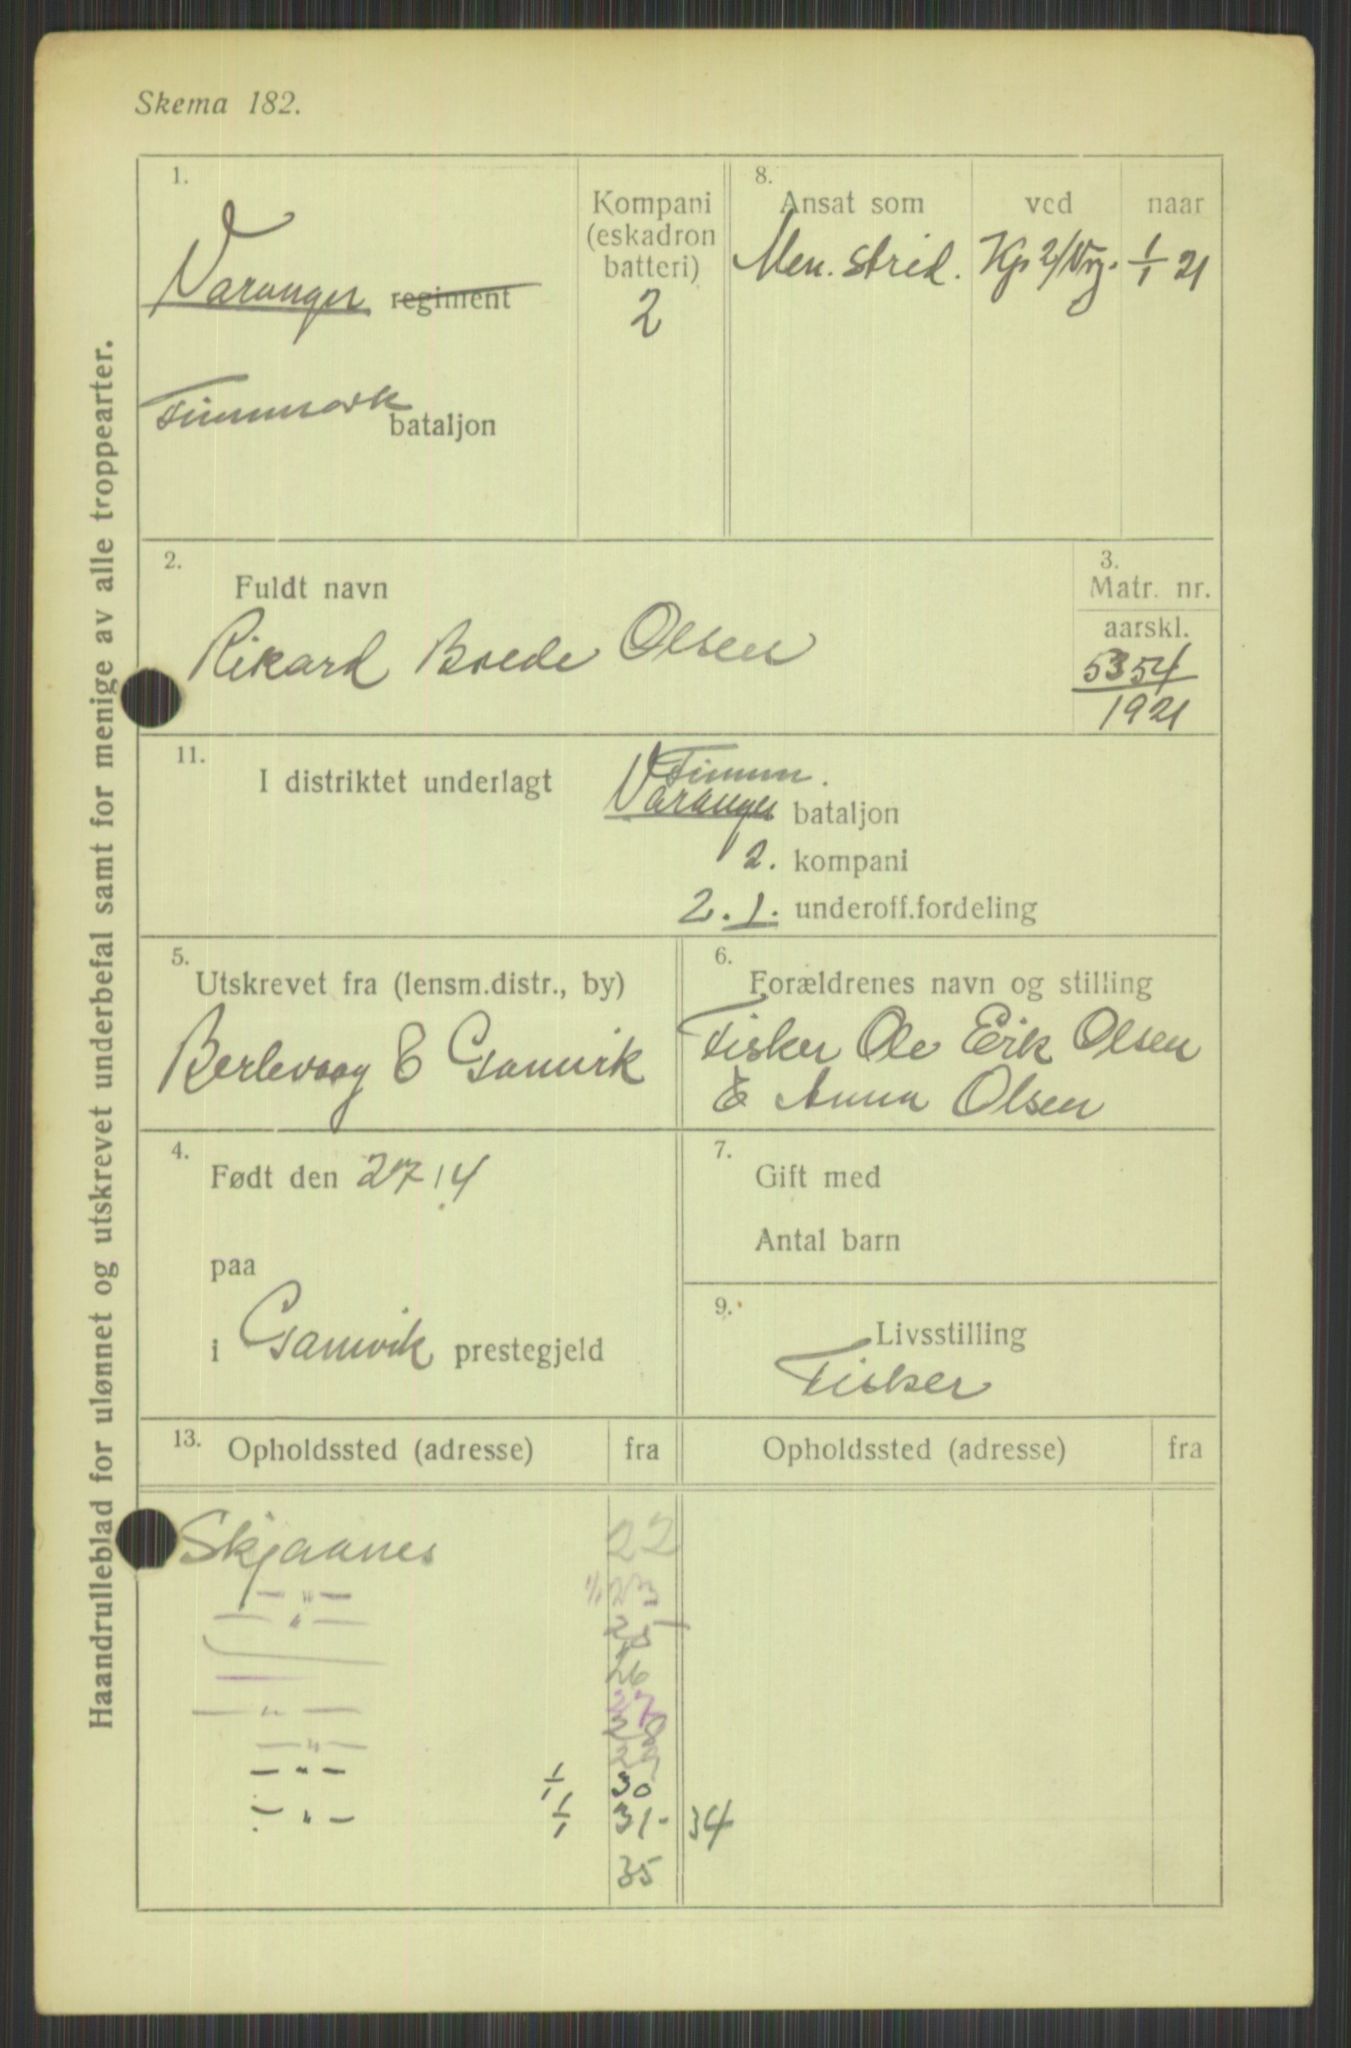 Skema 182.
Haandrulleblad for ulønnet og utskrevet underbefal samt for menige av alle troppearter.
1.
Varanger regiment
Finnmark bataljon
Kompani
(eskadron
batteri)
2
8.
Ansat som ved naar
Men. strid. Kp 2/Vrg. 1/1 21
2.
Fuldt navn
Rikard Brede Olsen
3.
Matr. nr.
aarskl.
5354
1921
11.
I distriktet underlagt
Finnm.
Varanger bataljon
2. kompani
2. 1. underoff.fordeling
5.
Utskrevet fra (lensm.distr., by)
Berlevaag & Gamvik
6.
Forældrenes navn og stilling
Fisker Ole Erik Olsen
& Anna Olsen
4.
Født den 27/4
paa
i Gamvik prestegjeld
7.
Gift med
Antal barn
9.
Livsstilling
Fisker
13. Opholdssted (adresse) fra Opholdssted (adresse) fra
Skjaanes 22
— " — 1/1 23
— " — 25
26
27
— " — 28
— " —
— " — 1/1 30
— " — 1/1 31 - 34
35